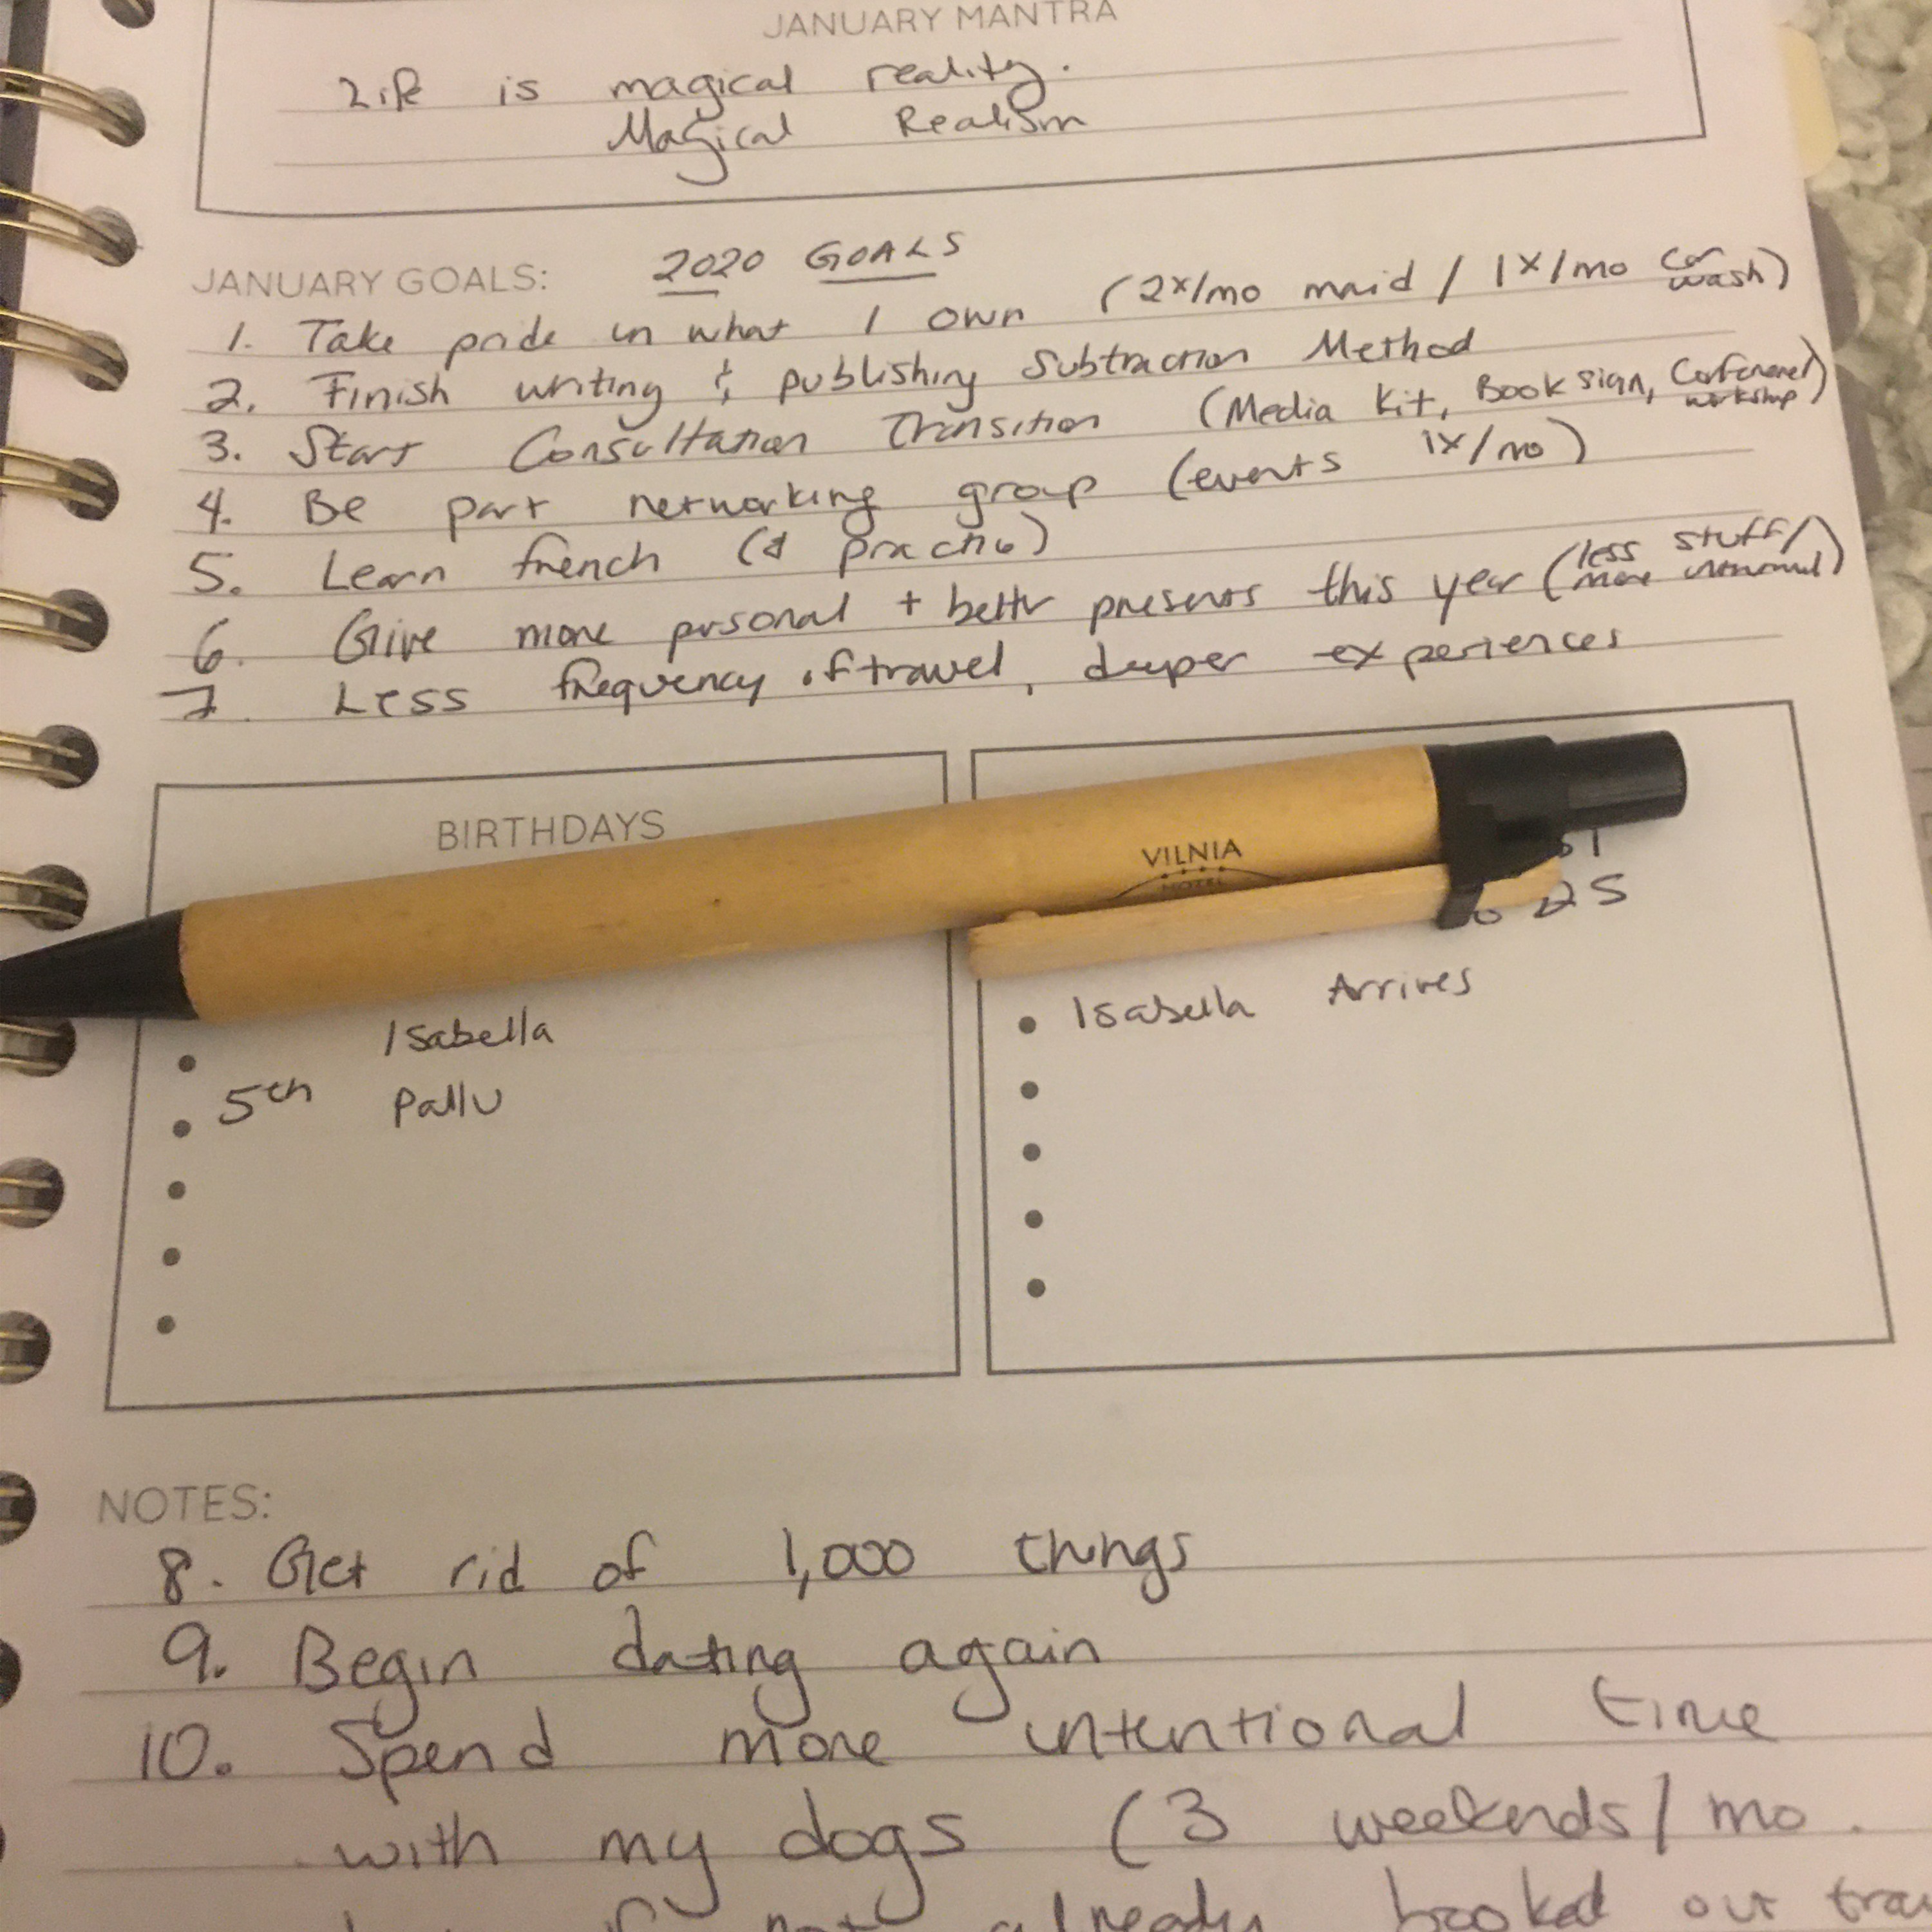 JANUARY MANTRA
Life is magical reality.
Magical Realism
JANUARY GOALS: 2020 GOALS
1. Take pride in what I own (2x/mo maid / 1x/mo car wash)
2. Finish writing & publishing Subtraction Method
3. Start Consultation Transition (Media Kit, Book sign, Conference/ workshop)
4. Be part networking group (events 1x/mo)
5. Learn french (&
6. Give more personal + better presents this year (less stuff/ more
7. Less frequency of travel, deeper experiences
BIRTHDAYS
VILNIA
HOTEL
25
Isabella
5th Pallu
Isabella Arrives
NOTES:
8. Get rid of 1,000 things
9. Begin dating again
10. Spend more intentional time
with my dogs (3 weekends/mo.
if not already booked out